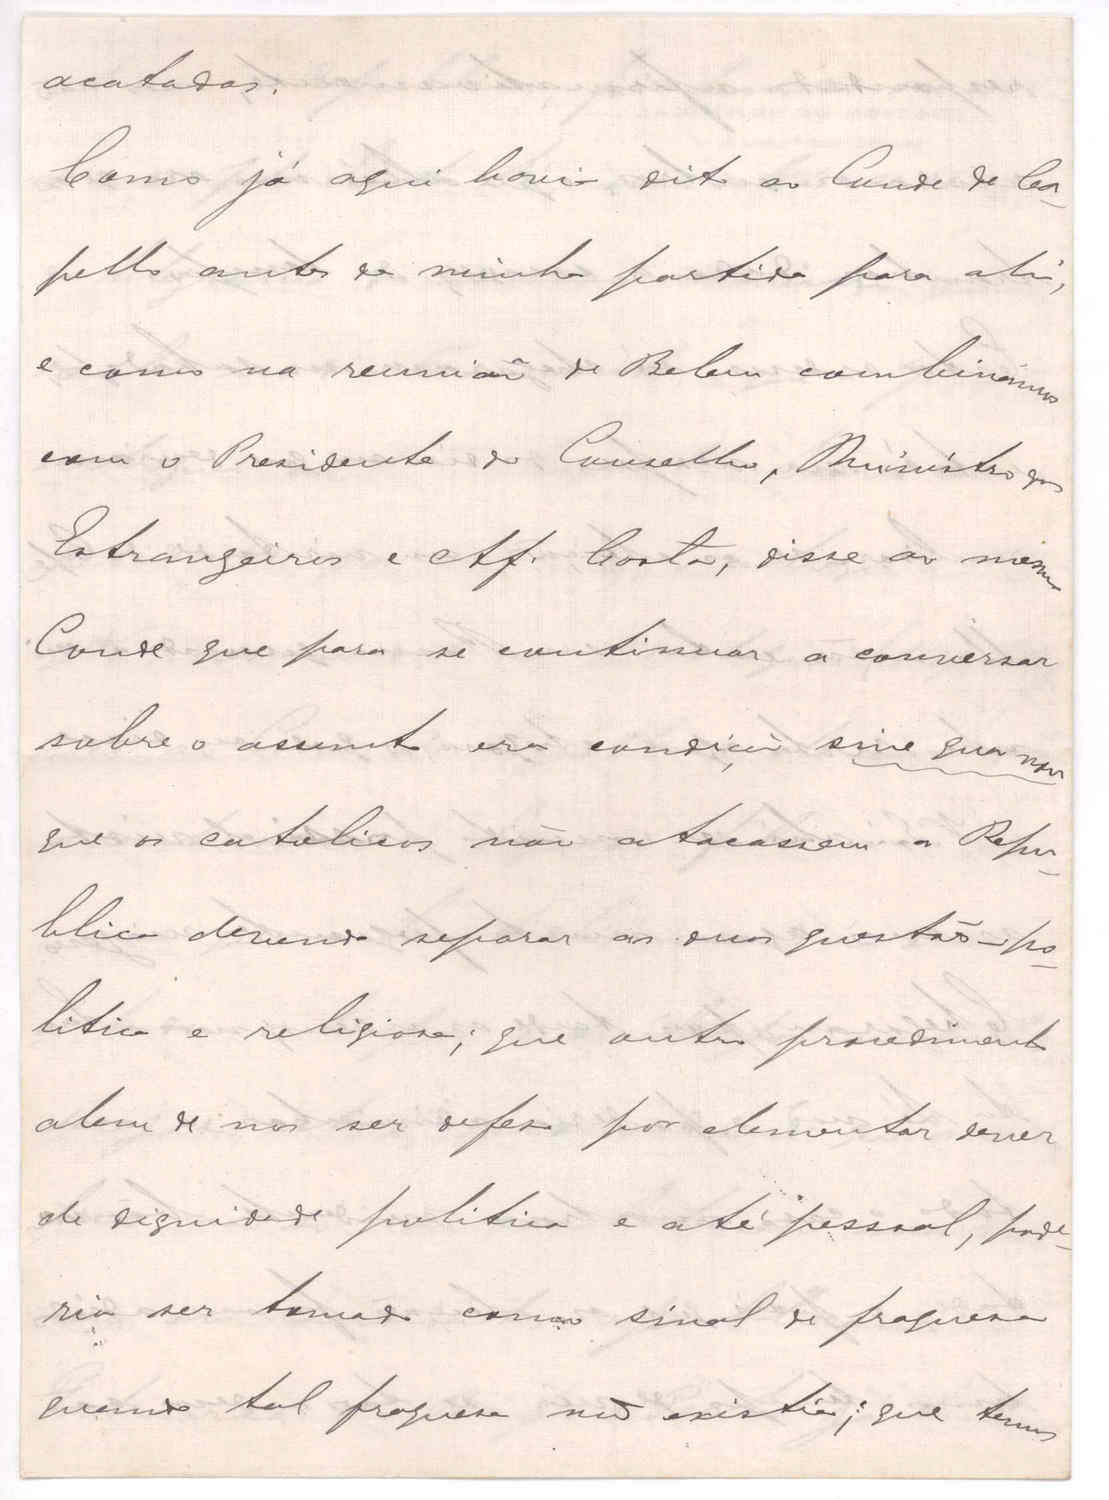 acatadas.
Como já aqui havia dito ao Conde de Ca-
pello antes da minha partida para ahi,
e como na reunião de Belem combinámos
com o Presidente do Conselho, Ministro dos
Estrangeiros e Aff. Costa, disse ao mesmo
Conde que para se continuar a conversar
sobre o assunto era condição sine qua non
que os catolicos não atacassem a Repu-
blica devendo separar as duas questões—po-
litica e religiosa; que outro procedimento
alem de nos ser defeso por elementar dever
de dignidade politica e até pessoal, pode-
ria ser tomado como sinal de fraquesa
quando tal fraquesa não existia; que temos